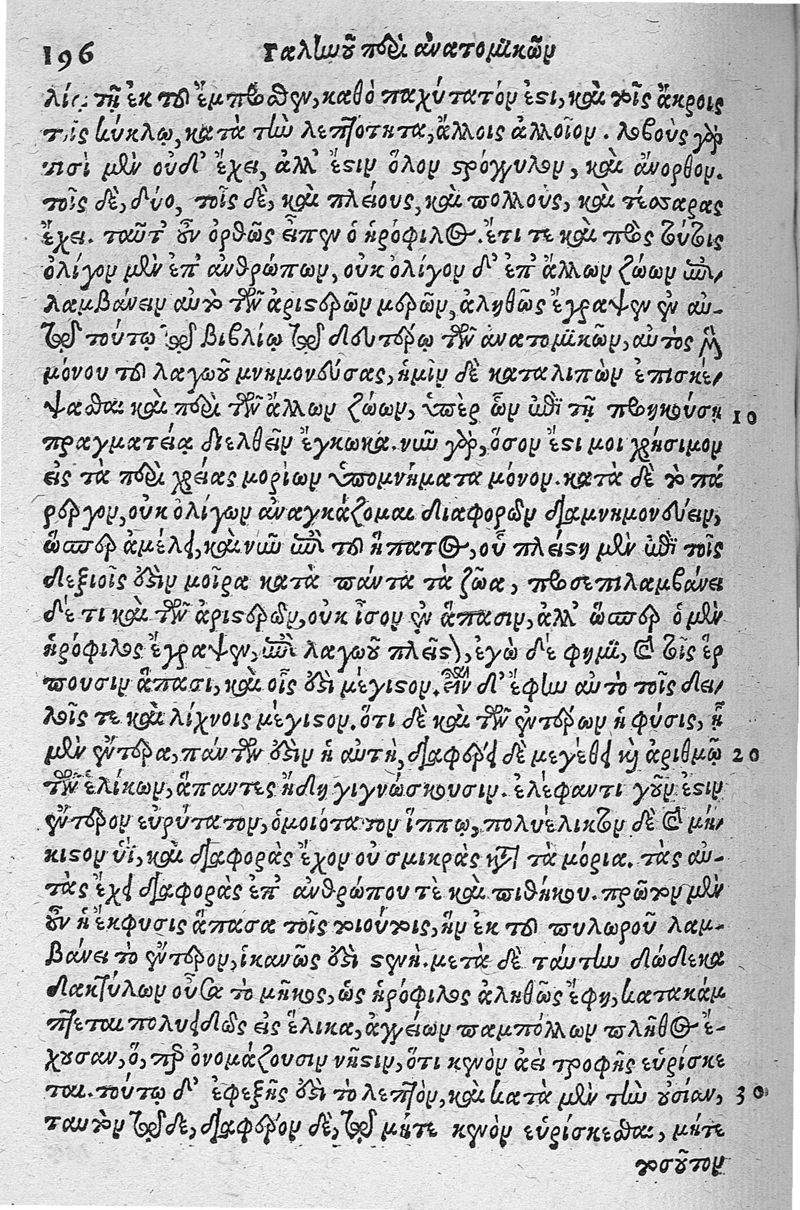 196 Γαληνοῦ περὶ ἀνατομικῶν
λίσ. τῇ ἐκ τοῦ ἔμπροσθεν, καθὸ παχύτατόν ἐστι, καὶ τοῖς ἄκροις
τοῖς κύκλῳ, κατὰ τὴν λεπτότητα, ἄλλοις ἀλλοῖον. λοβοὺς γὰρ
τισὶ μὲν οὐδ' ἔχει, ἀλλ' ἔστιν ὅλον στρόγγυλον, καὶ ἄνορθον.
τοῖς δὲ, δύο, τοῖς δὲ, καὶ πλείους, καὶ πολλοὺς, καὶ τέσσαρας
ἔχει. ταῦτ' οὖν ὀρθῶς εἶπεν ὁ ἡρόφιλος. ἔτι τε καὶ πρὸς τούτοις
ὀλίγον μὲν ἐπ' ἀνθρώπων, οὐκ ὀλίγον δ' ἐπ' ἄλλων ζώων ἐπι/
λαμβάνειν αὐτὸ τῶν ἀριστερῶν μερῶν, ἀληθῶς ἔγραψεν ἐν αὐ-
τῷ τούτῳ τῷ βιβλίῳ τῷ δευτέρῳ τῶν ἀνατομικῶν, αὐτὸς μὲν
μόνου τοῦ λαγωοῦ μνημονεύσας, ἡμῖν δὲ καταλιπὼν ἐπισκέ/
ψασθαι καὶ περὶ τῶν ἄλλων ζώων, ὑπὲρ ὧν ἐπὶ τῇ προηκούσῃ 10
πραγματείᾳ διελθεῖν ἔγνωκα. νῦν γὰρ, ὅσον ἐστί μοι χρήσιμον
εἰς τὰ περὶ χρείας μορίων ὑπομνήματα μόνον. κατὰ δὲ τὸ πά
ρεργον, οὐκ ὀλίγων ἀναγκάζομαι διαφορῶν διαμνημονεύειν,
ὥσπερ ἀμέλει, καὶ νῦν ἐπὶ τοῦ ἥπατος, οὗ πλείστη μὲν ἐπὶ τοῖς
δεξιοῖς ἐστιν μοῖρα κατὰ πάντα τὰ ζῶα, προσεπιλαμβάνει
δέ τι καὶ τῶν ἀριστερῶν, οὐκ ἴσον ἐν ἅπασιν, ἀλλ' ὥσπερ ὁ μὲν
ἡρόφιλος ἔγραψεν, ἐπὶ λαγωοῦ πλεῖστον, ἐγὼ δέ φημι, καὶ τοῖς ἕρ
πουσιν ἅπασι, καὶ οἷς ἐστι μέγιστον. εἶναι δ' ἔφην αὐτὸ τοῖς δει/
λοῖς τε καὶ λίχνοις μέγιστον. ὅτι δὲ καὶ τῶν ἐντέρων ἡ φύσις, ᾗ
μὲν ἔντερα, πάντων ἐστιν ἡ αὐτὴ, διαφέρει δὲ μεγέθει καὶ ἀριθμῷ 20
τῶν ἑλίκων, ἅπαντες ἤδη γιγνώσκουσιν. ἐλέφαντι γοῦν ἐστιν
ἔντερον εὐρύτατον, ὁμοιότατον ἵππῳ, πολυέλικτον δὲ καὶ μή/
κιστον ὑΐ, καὶ διαφορὰς ἔχον οὐ σμικρὰς κατὰ τὰ μόρια. τὰς αὐ-
τὰς ἔχει διαφορὰς ἐπ' ἀνθρώπου τε καὶ πιθήκου. πρῶτον μὲν
οὖν ἡ ἔκφυσις ἅπασα τοῖς τοιούτοις, ἣν ἐκ τοῦ πυλωροῦ λαμ-
βάνει τὸ ἔντερον, ἱκανῶς ἐστὶ στενή. μετὰ δὲ ταύτην δώδεκα
δακτύλων οὖσα τὸ μῆκος, ὡς ἡρόφιλος ἀληθῶς ἔφη, κατακάμ
πτεται πολυειδῶς εἰς ἕλικα, ἀγγείων παμπόλλων πλῆθος ἔ-
χουσαν, ὅ, περ ὀνομάζουσιν νῆστιν, ὅτι κενὸν ἀεὶ τροφῆς εὑρίσκε
ται. τούτῳ δ' ἐφεξῆς ἐστὶ τὸ λεπτὸν, καὶ κατὰ μὲν τὴν οὐσίαν, 30
ταυτὸν τῷδε, διαφέρον δὲ, τῷ μήτε κενὸν εὑρίσκεσθαι, μήτε
τοσοῦτον